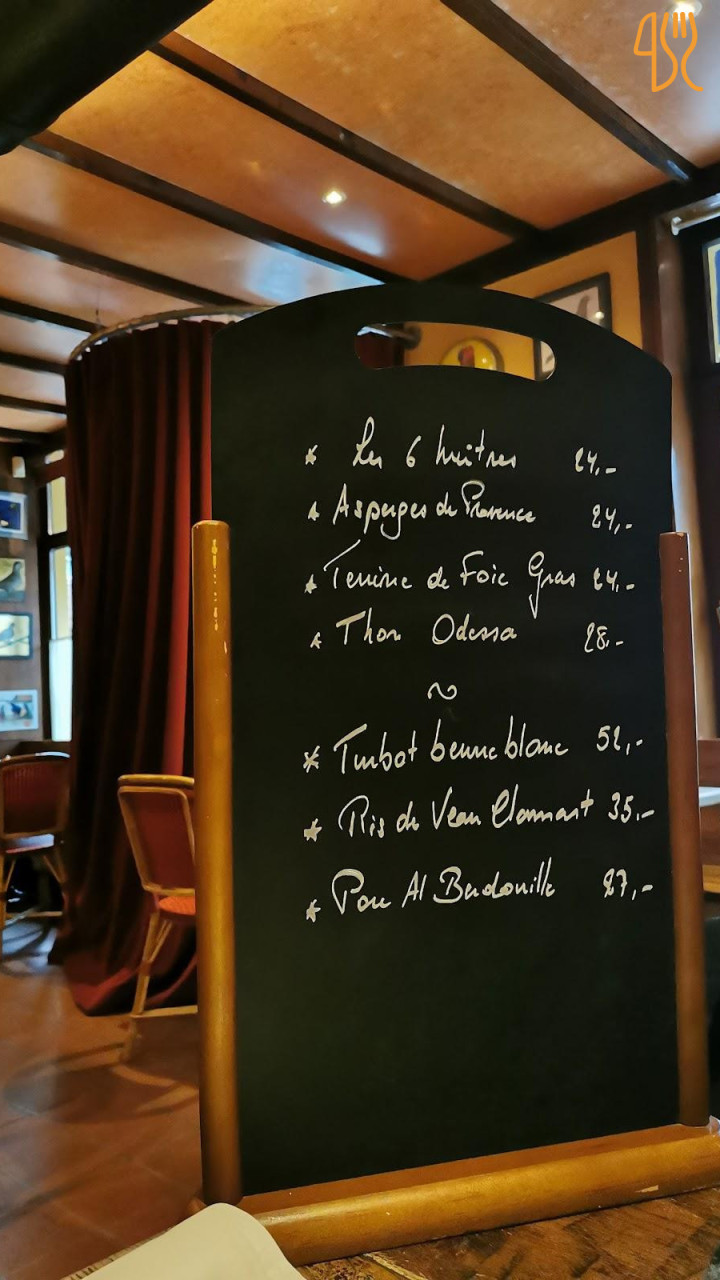 * Les 6 huîtres 24,-
* Asperges de Provence 24,-
* Terrine de Foie Gras 24,-
* Thon Odessa 28.-
~
* Turbot beurre blanc 52,-
* Ris de Veau Clamart 35.-
* Al Berdouille 27,-